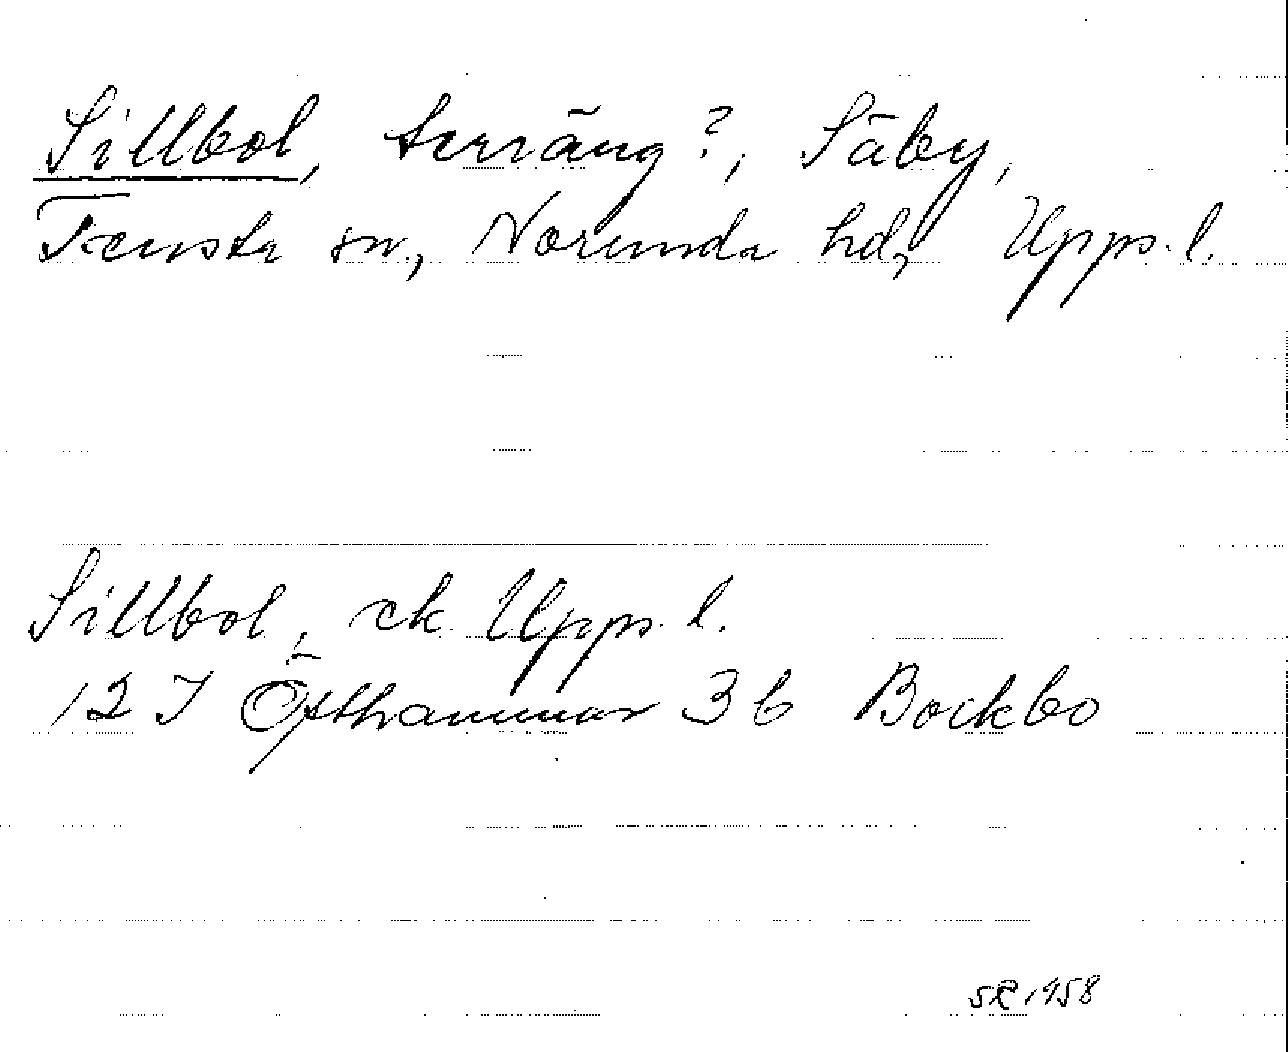 Sillbol, terräng?, Säby,
Tensta sn, Norunda hd, Upps. l.
Sillbol, ek Upps. l.
12 I Östhammar 3 b Bockbo
SR 1958